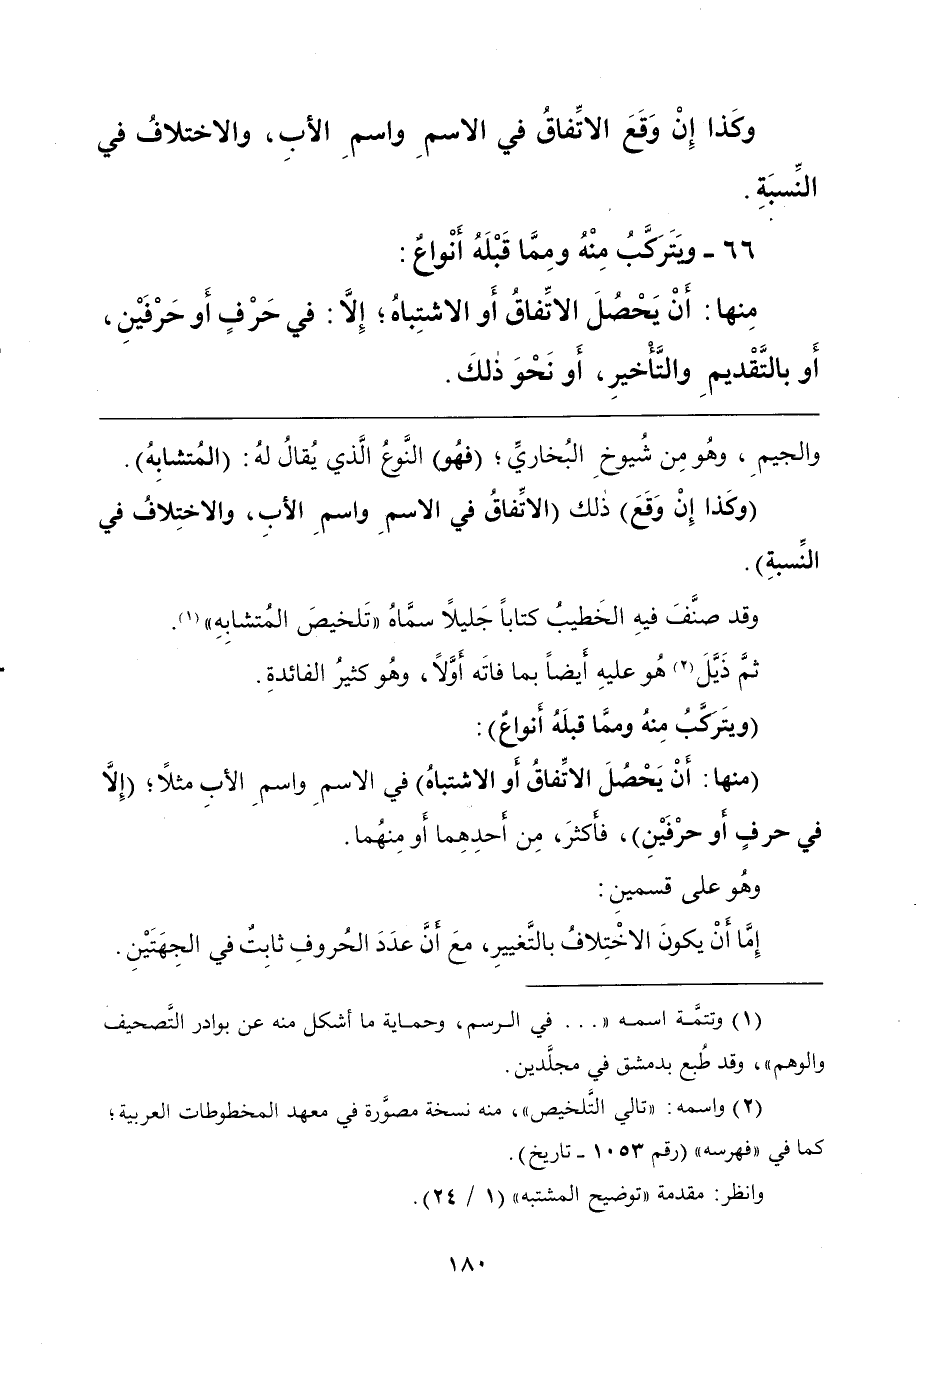 وكَذا إِنْ وَقَعَ الاتِّفاقُ في الاسمِ واسمِ الأبِ، والاختلافُ في
النِّسبَةِ.
٦٦ ـ ويَتَركَّبُ مِنْهُ ومِمَّا قَبْلَهُ أَنْواعٌ:
مِنها: أَنْ يَحْصُلَ الاتِّفاقُ أَو الاشتِباهُ؛ إِلَّا: في حَرْفٍ أَو حَرْفَيْنِ،
أَو بالتَّقْديمِ والتَّأْخيرِ، أَو نَحْوَ ذٰلكَ.
والجيمِ، وهُو مِن شُيوخِ البُخاريِّ؛ (فهُو) النَّوعُ الَّذي يُقالُ لهُ: (المُتشابِهُ).
(وكَذا إِنْ وَقَعَ) ذٰلك (الاتِّفاقُ في الاسمِ واسمِ الأبِ، والاختِلافُ في
النِّسبةِ).
وقد صنَّفَ فيهِ الخَطيبُ كتاباً جَليلًا سمَّاهُ «تَلخيصَ المُتشابِهِ»(١).
ثمَّ ذَيَّلَ(٢) هُو عليهِ أَيضاً بما فاتَه أَوَّلًا، وهُو كثيرُ الفائدةِ.
(ويتَركَّبُ مِنهُ وممَّا قبلَهُ أَنواعٌ):
(منها: أَنْ يَحْصُلَ الاتِّفاقُ أَو الاشتباهُ) في الاسمِ واسمِ الأبِ مثلًا؛ (إِلَّا
في حرفٍ أَو حرْفَيْنِ)، فأَكثرَ، مِن أَحدِهِما أَو مِنهُما.
وهُو على قسمينِ:
إِمَّا أَنْ يكونَ الاخْتِلافُ بالتَّغييرِ، معَ أَنَّ عدَدَ الحُروفِ ثابتٌ في الجِهَتَيْنِ.
(١) وتتمَّـة اسمـه «... في الـرسم، وحمـاية ما أشكل منه عن بوادر التَّصحيف
والوهم»، وقد طُبع بدمشق في مجلَّدين.
(٢) واسمه: «تالي التَّلخيص»، منه نسخة مصوَّرة في معهد المخطوطات العربية؛
كما في «فهرسه» (رقم ١٠٥٣ ـ تاريخ).
وانظر: مقدمة «توضيح المشتبه» (١ / ٢٤).
١٨٠